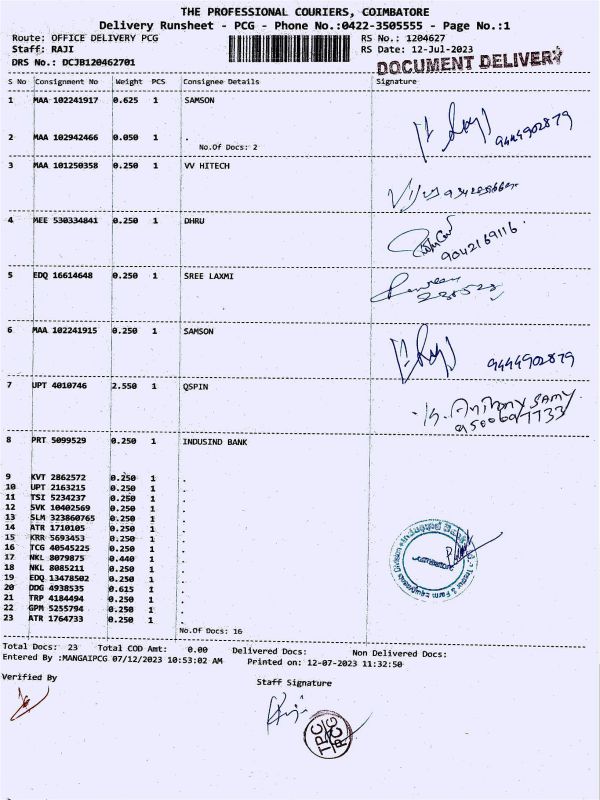 THE PROFESSIONAL COURIERS, COIMBATORE
Delivery Runsheet - PCG - Phone No.:0422-3505555 - Page No.:1
Route: OFFICE DELIVERY PCG RS No.: 1204627
Staff: RAJI RS Date: 12-Jul-2023
DRS No.: DCJB120462701 DOCUMENT DELIVERY
S No Consignment No Weight PCS Consignee Details Signature
1 MAA 102241917 0.625 1 SAMSON
9444902879
2 MAA 102942466 0.050 1 .
No.Of Docs: 2
3 MAA 101250358 0.250 1 VV HITECH
4 MEE 530334841 0.250 1 DHRU
9042169116
5 EDQ 16614648 0.250 1 SREE LAXMI
6 MAA 102241915 0.250 1 SAMSON
9444902879
7 UPT 4010746 2.550 1 QSPIN
Anthony SAMY
8 PRT 5099529 0.250 1 INDUSIND BANK
9 KVT 2862572 0.250 1 .
10 UPT 2163215 0.250 1 .
11 TSI 5234237 0.250 1 .
12 SVK 10402569 0.250 1 .
13 SLM 323860765 0.250 1 .
14 ATR 1710105 0.250 1 .
15 KRR 5693453 0.250 1 .
16 TCG 40545225 0.250 1 .
17 NKL 8079875 0.440 1 .
18 NKL 8085211 0.250 1 .
19 EDQ 13478502 0.250 1 .
20 DDG 4938535 0.615 1 .
21 TRP 4184494 0.250 1 .
22 GPM 5255794 0.250 1 .
23 ATR 1764733 0.250 1 .
No.Of Docs: 16
Total Docs: 23 Total COD Amt: 0.00 Delivered Docs: Non Delivered Docs:
Entered By :MANGAIPCG 07/12/2023 10:53:02 AM Printed on: 12-07-2023 11:32:50
Verified By Staff Signature
TPC
PCG